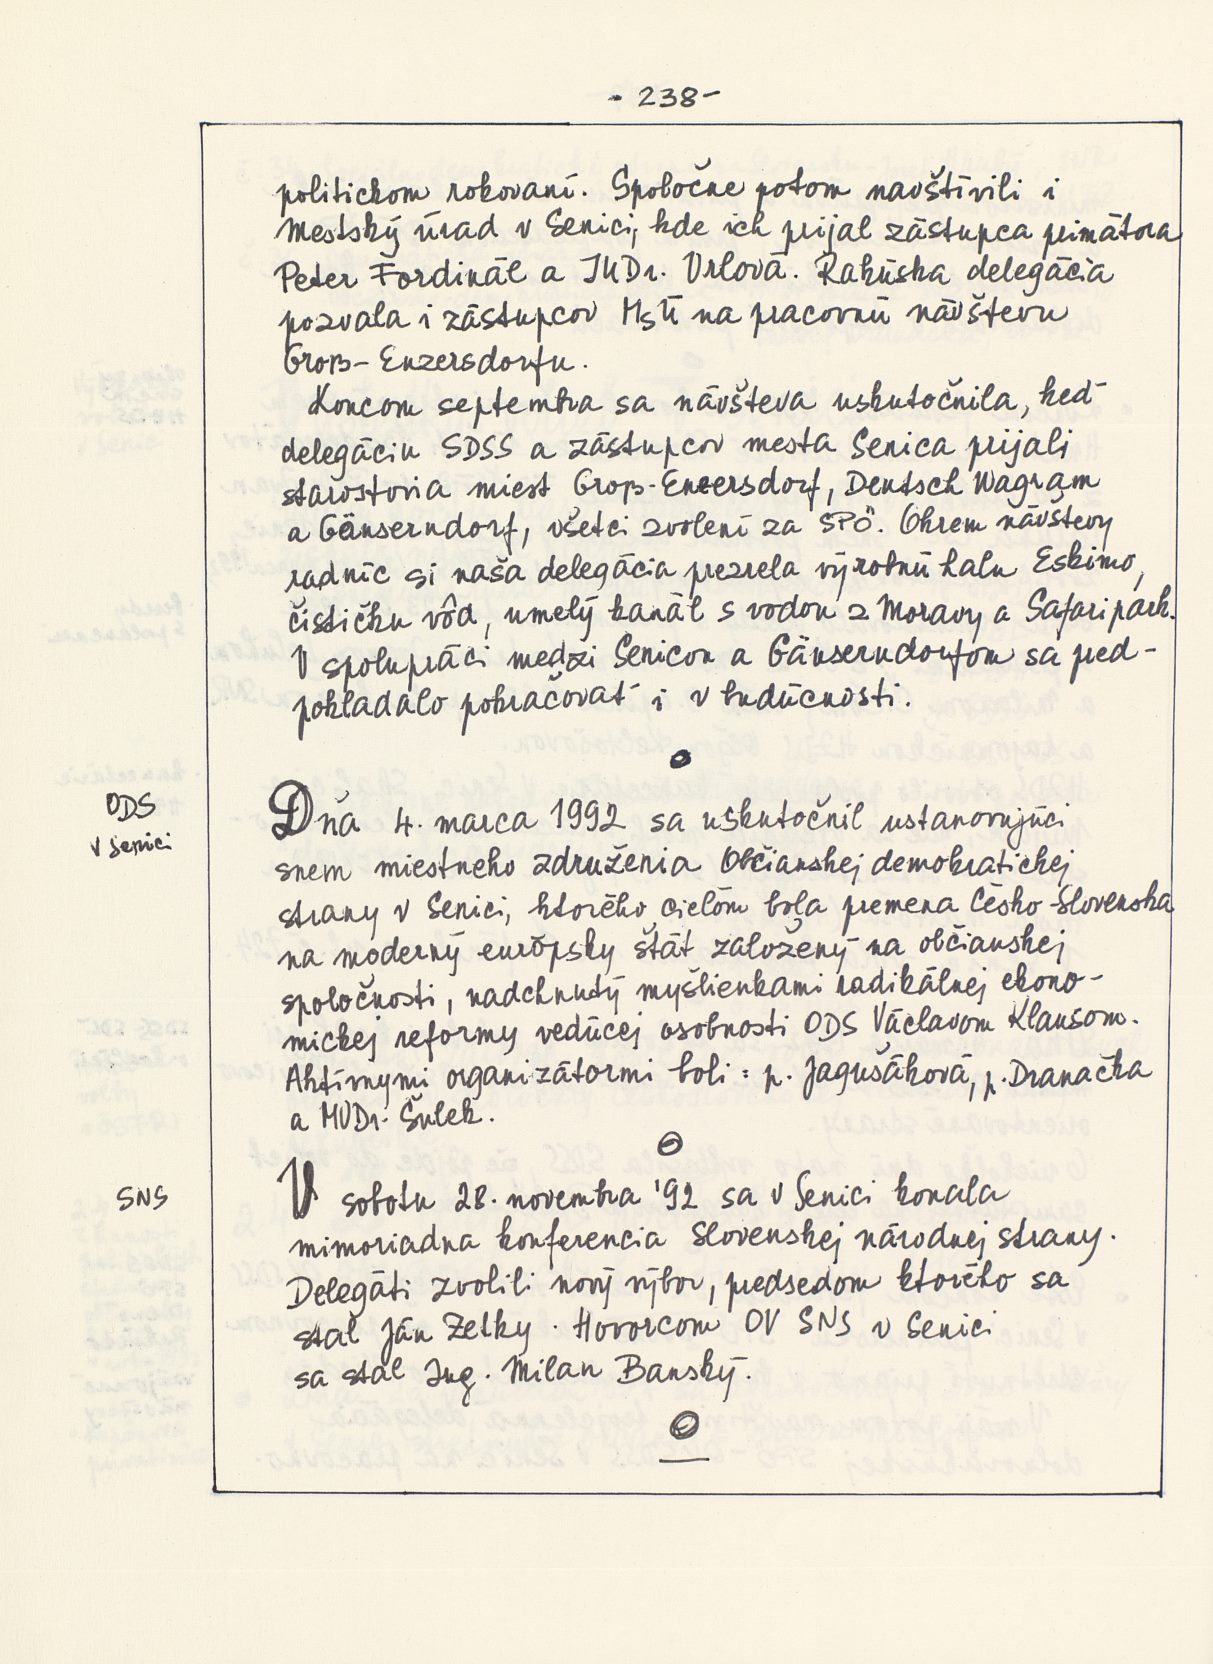 - 238 -
politickom rokovaní. Spoločne potom navštívili i
Mestský úrad v Senici, kde ich prijal zástupca primátora
Peter Fordinál a JUDr. Vrlová. Rakúska delegácia
pozvala i zástupcov MsÚ na pracovnú návštevu
Groß-Enzersdorfu.
Koncom septembra sa návšteva uskutočnila, keď
delegáciu SDSS a zástupcov mesta Senica prijali
starostovia miest Groß-Enzersdorf, Deutsch Wagram
a Gänserndorf, všetci zvolení za SPÖ. Okrem návštevy
radníc si naša delegácia prezrela výrobnú halu Eskimo,
čističku vôd, umelý kanál s vodou z Moravy a Safaripark.
V spolupráci medzi Senicou a Gänserndorfom sa pred-
pokladalo pokračovať i v budúcnosti.
ODS
v Senici
Dňa 4. marca 1992 sa uskutočnil ustanovujúci
snem miestneho združenia Občianskej demokratickej
strany v Senici, ktorého cieľom bola premena Česko-Slovenska
na moderný európsky štát založený na občianskej
spoločnosti, nadchnutý myšlienkami radikálnej ekono-
mickej reformy vedúcej osobnosti ODS Václavom Klausom.
Aktívnymi organizátormi boli: p. Jagušáková, p. Dranačka
a MVDr. Šulek.
SNS
V sobotu 28. novembra '92 sa v Senici konala
mimoriadna konferencia Slovenskej národnej strany.
Delegáti zvolili nový výbor, predsedom ktorého sa
stal Ján Zelky. Hovorcom OV SNS v Senici
sa stal Ing. Milan Banský.